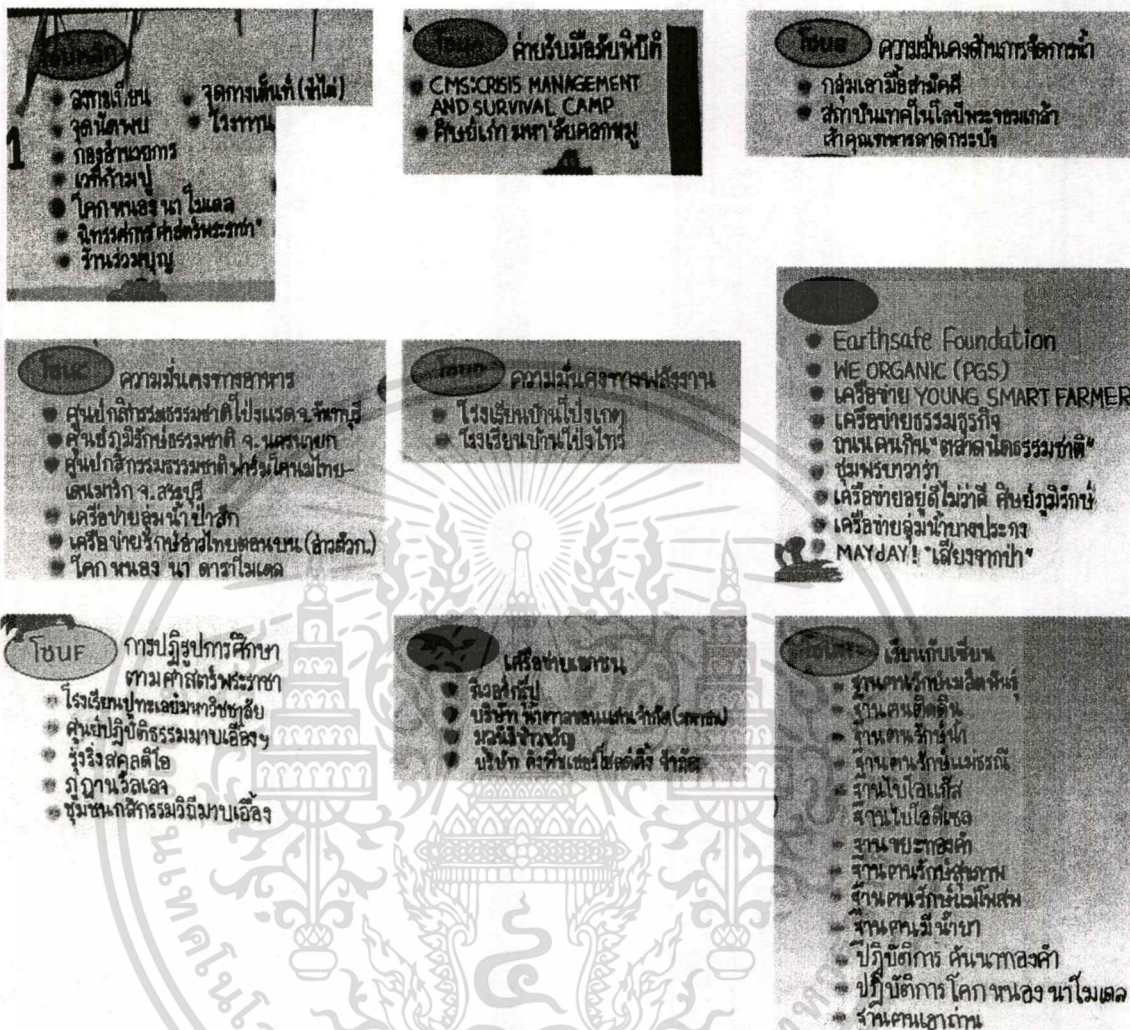 โซนหลัก
ลงทะเบียน
จุดนัดพบ
กองอำนวยการ
เวทีก้ามปู
โคก หนอง นา โมเดล
นิทรรศการ"ศาสตร์พระราชา"
ร้านร่วมบุญ
จุดกางเต็นท์ (ป่าไผ่)
โรงทาน
1
โซนA ค่ายรับมือภัยพิบัติ
CMS:CRISIS MANAGEMENT
AND SURVIVAL CAMP
ศิษย์เก่า มหา'ลัยคอกหมู
โซนB ความมั่นคงด้านการจัดการน้ำ
กลุ่มเอามื้อสามัคคี
สถาบันเทคโนโลยีพระจอมเกล้า
เจ้าคุณทหารลาดกระบัง
โซนC ความมั่นคงทางอาหาร
ศูนย์กสิกรรมธรรมชาติโป่งแรด จ.จันทบุรี
ศูนย์ภูมิรักษ์ธรรมชาติ จ.นครนายก
ศูนย์กสิกรรมธรรมชาติฟาร์มโคนมไทย-
เดนมาร์ก จ.สระบุรี
เครือข่ายลุ่มน้ำป่าสัก
เครือข่ายรักษ์อ่าวไทยตอนบน (อ่าวตัวก.)
โคก หนอง นา ดาราโมเดล
โซนD ความมั่นคงทางพลังงาน
โรงเรียนบ้านโป่งเกตุ
โรงเรียนบ้านโป่งไทร
Earthsafe Foundation
WE ORGANIC (PGS)
เครือข่าย YOUNG SMART FARMER
เครือข่ายธรรมธุรกิจ
ถนนคนกิน"ตลาดนัดธรรมชาติ"
ชุมพรคาวาร่า
เครือข่ายอยู่ดีไม่ว่าดี ศิษย์ภูมิรักษ์
เครือข่ายลุ่มน้ำบางประกง
MAYdAY! "เสียงจากป่า"
โซนF การปฏิรูปการศึกษา
ตามศาสตร์พระราชา
โรงเรียนปูทะเลย์มหาวิชชาลัย
ศูนย์ปฏิบัติธรรมมาบเอื้องฯ
รุ่งริ่งสคูลดิโอ
ภูถานวัลเลจ
ชุมชนกสิกรรมวิถีมาบเอื้อง
เครือข่ายเอกชน
บริษัท น้ำตาลขอนแก่น จำกัด(มหาชน)
มูลนิธิข้าวขวัญ
เรียนกับเซียน
ฐานคนรักษ์เมล็ดพันธุ์
ฐานคนติดดิน
ฐานคนรักษ์น้ำ
ฐานคนรักษ์แม่ธรณี
ฐานไบโอแก๊ส
ฐานไบโอดีเซล
ฐานขยะทองคำ
ฐานคนรักษ์สุขภาพ
ฐานคนรักษ์แม่โพสพ
ฐานคนมีน้ำยา
ปฏิบัติการ คันนาทองคำ
ปฏิบัติการ โคก หนอง นาโมเดล
ฐานคนเอาถ่าน